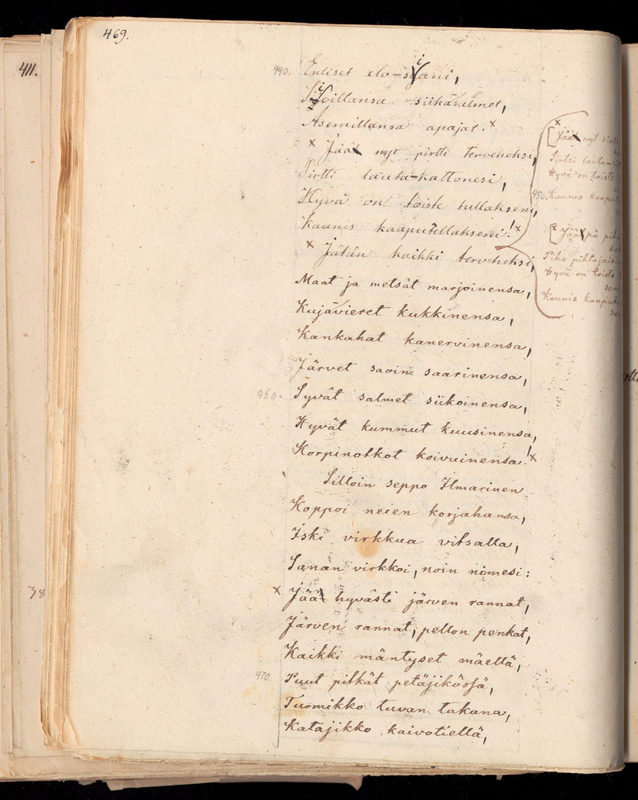 469.
411.
440. Entiset elo-sijani,
Sijoillansa siikasalmet,
Asemillansa apajat.x
x Jää nyt pirtti terveheksi,
Pirtti lauta-kattonesi,
Hyvä on toiste tullakseni,
Kaunis kaaputellakseni!x
x Jätän kaikki terveheksi,
Maat ja metsät marjoinensa,
Kujavieret kukkinensa,
Kankahat kanervinensa,
Järvet saoin saarinensa,
460. Syvät salmet siikoinensa,
Hyvät kummut kuusinensa,
Korpinotkot koivuinensa!x
Silloin seppo Ilmarinen
Koppoi neien korjahansa,
Iski virkkua vitsalla,
Sanan virkkoi, noin nimesi:
x Jää hyvästi järven rannat,
Järven rannat, pellon penkat,
Kaikki mäntyset mäellä,
470 Puut pitkät petäjikössä,
Tuomikko tuvan takana,
Katajikko kaivotiellä,
x [Jää nyt
lauta-
Hyvä on toiste
450. Kaunis kaaput
[Jää piha
Piha pihlaja
Hyvä on toiste
Kaunis kaaput
38